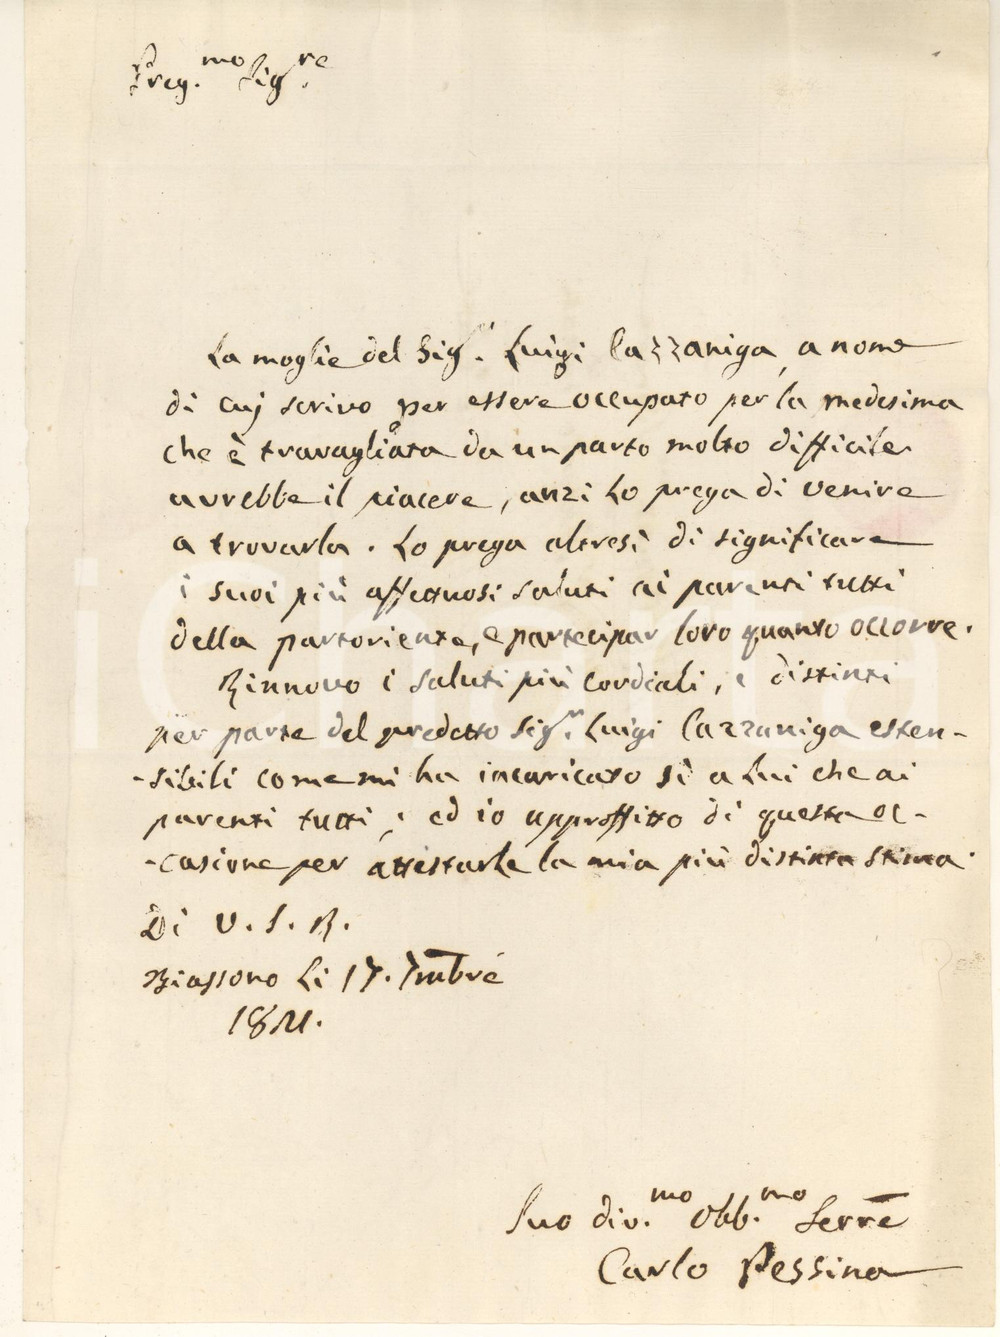 Preg.mo Sigre.
La moglie del Sigr. Luigi Cazzaniga, a nome
di cuj scrivo per essere occupato per la medesima
che è travagliata da un parto molto difficile
avrebbe il piacere, anzi Lo prega di venire
a trovarla. Lo prega altresì di significare
i suoi più affettuosi saluti ai parenti tutti
della partoriente, e partecipar loro quanto occorre.
Rinnovo i saluti più cordiali, e distinti
per parte del predetto Sigr. Luigi Cazzaniga esten-
-sibili come mi ha incaricato sì a Lui che ai
parenti tutti, ed io approffitto di questa oc-
-casione per attestarle la mia più distinta stima.
Di V. S. R.
Biassono Li 17. 7mbre
Suo div.mo Obb.mo Serre
Carlo Pessina
iCharta